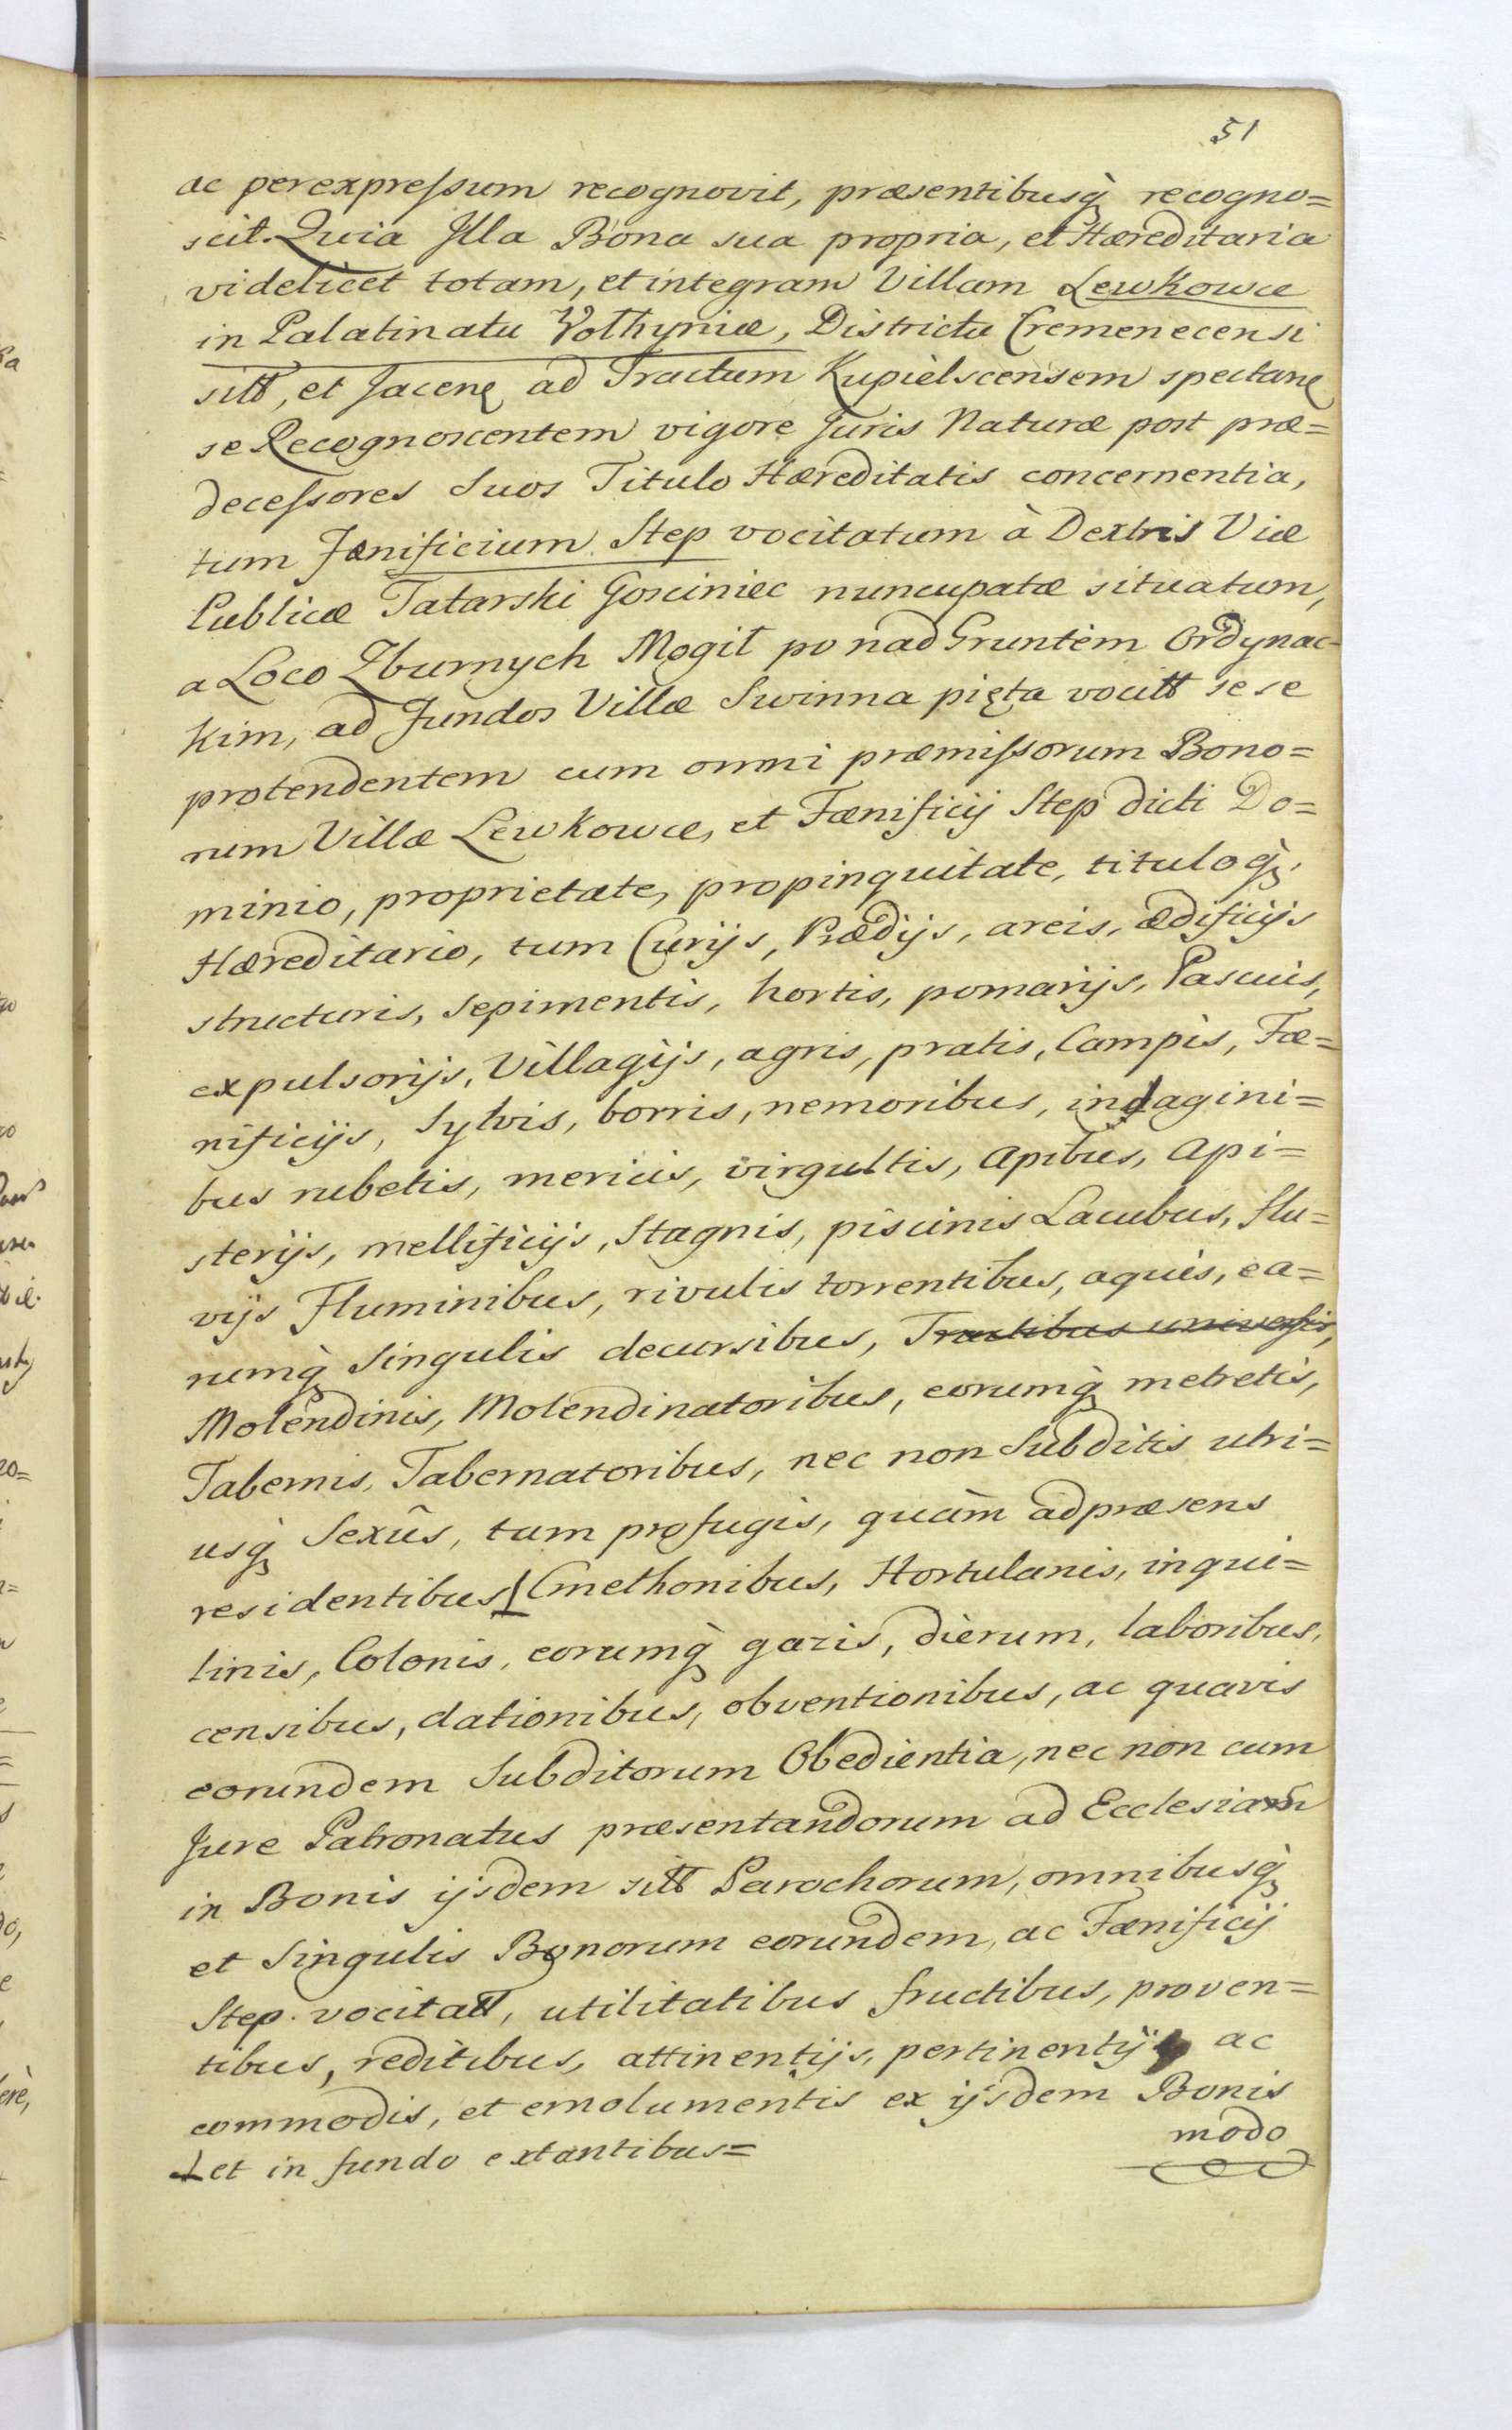 51
ac perexpressum recognovit, præsentibusq̀ recogno=
scit. Quia Illa Bona sua propria, et Hæreditaria
videlicet totam, et integram Villam Lewkowce
in Palatinatu Wolhyniæ, Districtu Cremenecensi
sitt, et Jacenę ad Tractum Kupielscensem spectanę
se Recognoscentem vigore Juris Naturæ post præ=
decessores Suos Titulo Hæreditatis concernentia,
tum Fænificium Step vocitatum à Dextris Viæ
Publicæ Tatarski Gosciniec nuncupatæ situatum,
a Loco Zburnych Mogił po nad Gruntem Ordynac=
kim, ad Fundos Villæ Swinna pięta vocitt sese
protendentem cum omni præmissorum Bono=
rum Villæ Lewkowce, et Fænificij Step dicti Do=
minio, proprietate, propinquitate, tituloq̀,
Hæreditario, tum Curijs, Prædijs, areis, ædificijs
structuris, sepimentis, hortis, pomarijs, Pascuis,
expulsorijs, Villagijs, agris, pratis, Campis, Fæ=
nificijs, Sylvis, borris, nemoribus, indagini=
bus rubetis, mericis, virgultis, Apibus, Api=
sterijs, mellificijs, Stagnis, piscinis Lacubus, flu=
vijs Fluminibus, rivulis torrentibus, aquis, ea=
rumq̀ Singulis decursibus, Tractibus universis,
Molendinis, Molendinatoribus, eorumq̀ metretis,
Tabernis, Tabernatoribus, nec non Subditis utri=
usq̀ Sexûs, tam profugis, quàm adpræsens
residentibus ⊥ Cmethonibus, Hortulanis, inqui=
linis, Colonis, eorumq̀ gazis, dierum, laboribus,
censibus, dationibus, obventionibus, ac quavis
eorundem Subditorum Obedientia, nec non cum
Jure Patronatus præsentandorum ad Ecclesiam
in Bonis ijsdem sitt Parochorum, omnibusq̀
et Singulis Bonorum eorundem, ac Fænificij
Step vocitatt, utilitatibus fructibus, proven=
tibus, reditibus, attinentijs, pertinentijs ac
commodis, et emolumentis ex ijsdem Bonis
modo
⊥ et in fundo extantibus=